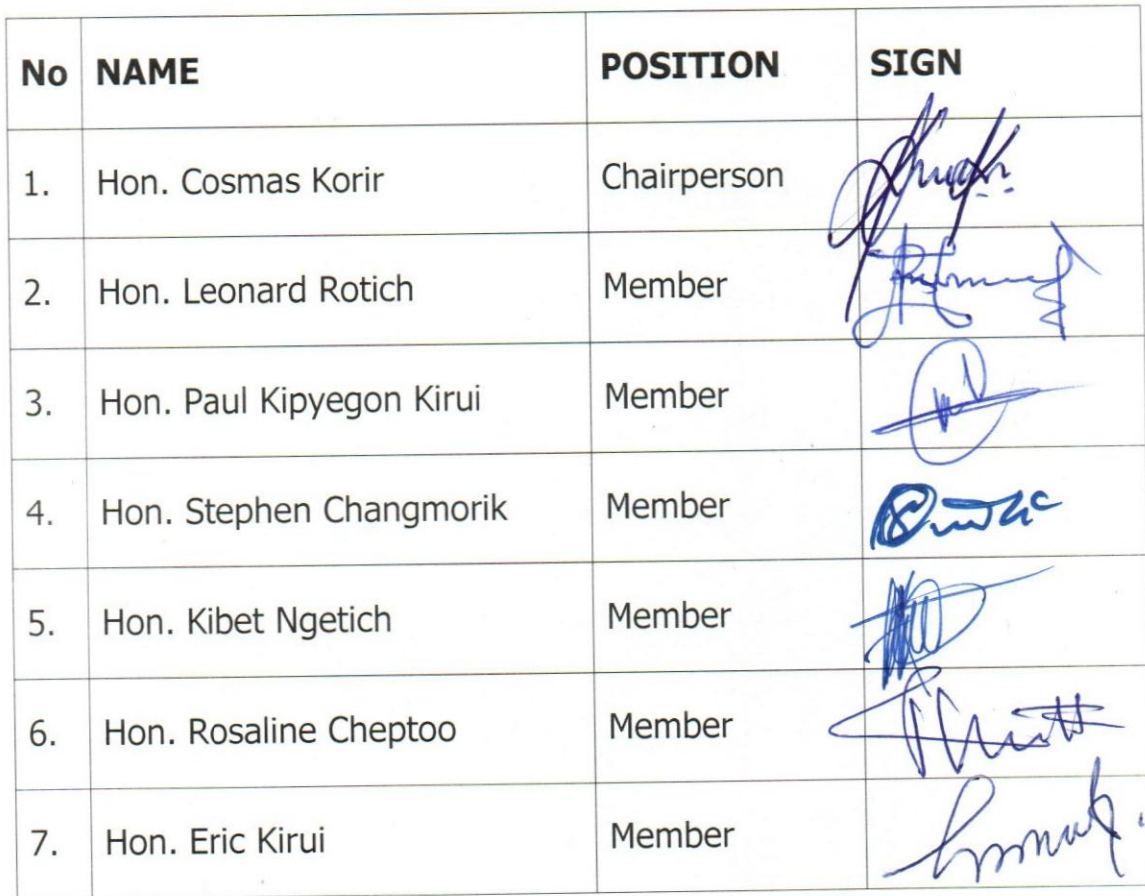 No NAME POSITION SIGN
1. Hon. Cosmas Korir Chairperson
2. Hon. Leonard Rotich Member
3. Hon. Paul Kipyegon Kirui Member
4. Hon. Stephen Changmorik Member
5. Hon. Kibet Ngetich Member
6. Hon. Rosaline Cheptoo Member
7. Hon. Eric Kirui Member